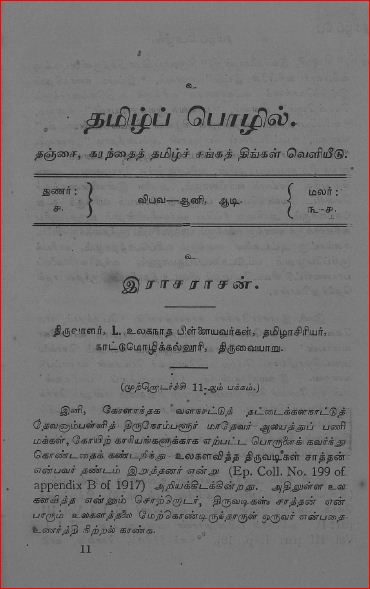 உ
தமிழ்ப் பொழில்.
தஞ்சை, கரந்தைத் தமிழ்ச் சங்கத் திங்கள் வெளியீடு.
துணர் :
௪.
விபவ—ஆனி, ஆடி.
மலர் :
௩-௪.
உ
இராசராசன்.
திருவாளர், L. உலகநாத பிள்ளையவர்கள், தமிழாசிரியர்,
காட்டுமொழிக்கல்லூரி, திருவையாறு.
(முற்றொடர்ச்சி 11-ஆம் பக்கம்.)
இனி, கேரளாந்தக வளநாட்டுத் தட்டைக்களநாட்டுத்
தேவனும்பள்ளித் திருகோம்பளூர் மாதேவர் ஆலயத்துப் பணி
மக்கள், கோயிற் காரியங்களுக்காக ஏற்பட்ட பொருளைக் கவர்ந்து
கொண்டதைக் கண்டறிந்து உலகளவித்த திருவடிகள் சாத்தன்
என்பவர் தண்டம் இறுத்தனர் என்று (Ep. Coll. No. 199 of
appendix B of 1917) அறியக்கிடக்கின்றது. அதிலுள்ள உல
களவித்த என்னும் சொற்றொடர், திருவடிகள் சாத்தன் என்
பாரும் உலகளத்தலை மேற்கொண்டிருந்தாருள் ஒருவர் என்பதை
உணர்த்தி நிற்றல் காண்க.
11